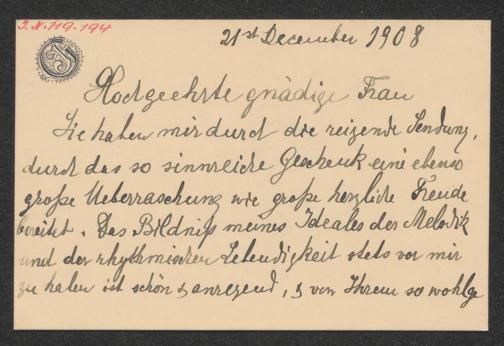 I.N. 119.194
21st December 1908
Hochgeehrte gnädige Frau
Sie haben mir durch die reizende Sendung,
durch das so sinnreiche Geschenk eine ebenso
große Ueberraschung wie große herzliche Freude
bereitet. Das Bildniß meines Ideales der Melodik
und der rhythmischen Lebendigkeit stets vor mir
zu haben ist schön & anregend, & von Ihrem so wohlge